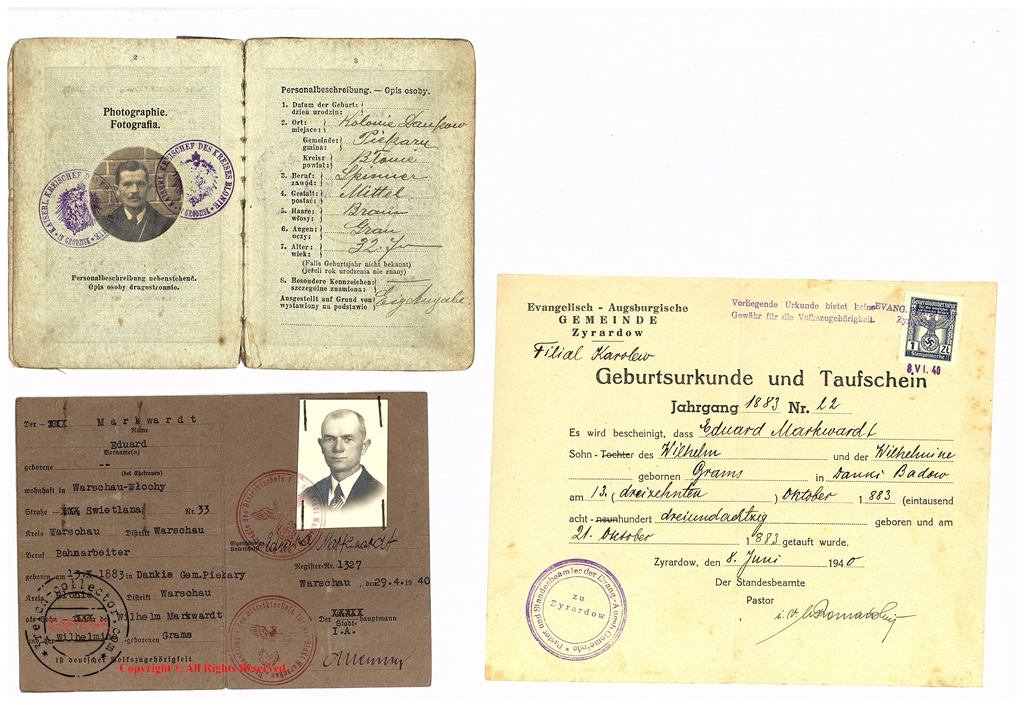 2
Photographie.
Fotografia.
KAISERL. KREISCHEF DES KREISES BLONIE
IN GRODZISK
KAISERL. KREISCHEF D
IN GRODZISK
Personalbeschreibung nebenstehend.
Opis osoby drugostronnie.
3
Personalbeschreibung. — Opis osoby.
1. Datum der Geburt:
dzień urodzin:
2. Ort: Kolonie
miejsce:
Gemeinde: Piekary
gmina:
Kreis: Błonie
powiat:
3. Beruf: Spinner
zawód:
4. Gestalt: Mittel
postać:
5. Haare: Braun
włosy:
6. Augen: Grau
oczy:
7. Alter: 32.
wiek:
(Falls Geburtsjahr nicht bekannt)
(jeżeli rok urodzenia nie znany)
8. Besondere Kennzeichen: —
szczególne znamiona:
Ausgestellt auf Grund von Eig. Angabe
wystawiony na podstawie
Der - XXX Markwardt
Name
Eduard
Vorname(n)
geborene --
(bei Ehefrauen)
wohnhaft in Warschau-Włochy
Straße - XXX Swietlana Nr. 33
Kreis Warschau Distrikt Warschau
Beruf Bahnarbeiter
geboren am 13.X.1883 in Dankis Gem.Piekary
Kreis Blonie Distrikt Warschau
als Wilhelm Markwardt
Wilhelmin geborenen Grams
ist deutscher Volkszugehörigkeit
Eigenhändige
Unterschrift: Eduard Markwardt
Register-Nr. 1327
Warschau, den 29.4.1940
Der XXXXX hauptmann
Stadt-
I.A.
Copyright © All Rights Reserved
Evangelisch - Augsburgische
GEMEINDE
Zyrardow
Filial Karolew
Vorliegende Urkunde bietet keine
Gewähr für die Volkszugehörigkeit.
EVANG.
Generalgouvernement
1 Zł
Stempelmarke
8. VI. 40
Geburtsurkunde und Taufschein
Jahrgang 1883 Nr. 22
Es wird bescheinigt, dass Eduard Markwardt
Sohn - Tochter des Wilhelm und der Wilhelmine
gebornen Grams in Danki Badow
am 13. (dreizehnten) Oktober 1883 (eintausend
acht - neunhundert dreiundachtzig geboren und am
21. Oktober 1883 getauft wurde.
Zyrardow, den 8. Juni 1940
Der Standesbeamte
Pastor
i.V.
Pastor und Standesbeamter der Evang.-Augsb. Gemeinde
zu
Zyrardow